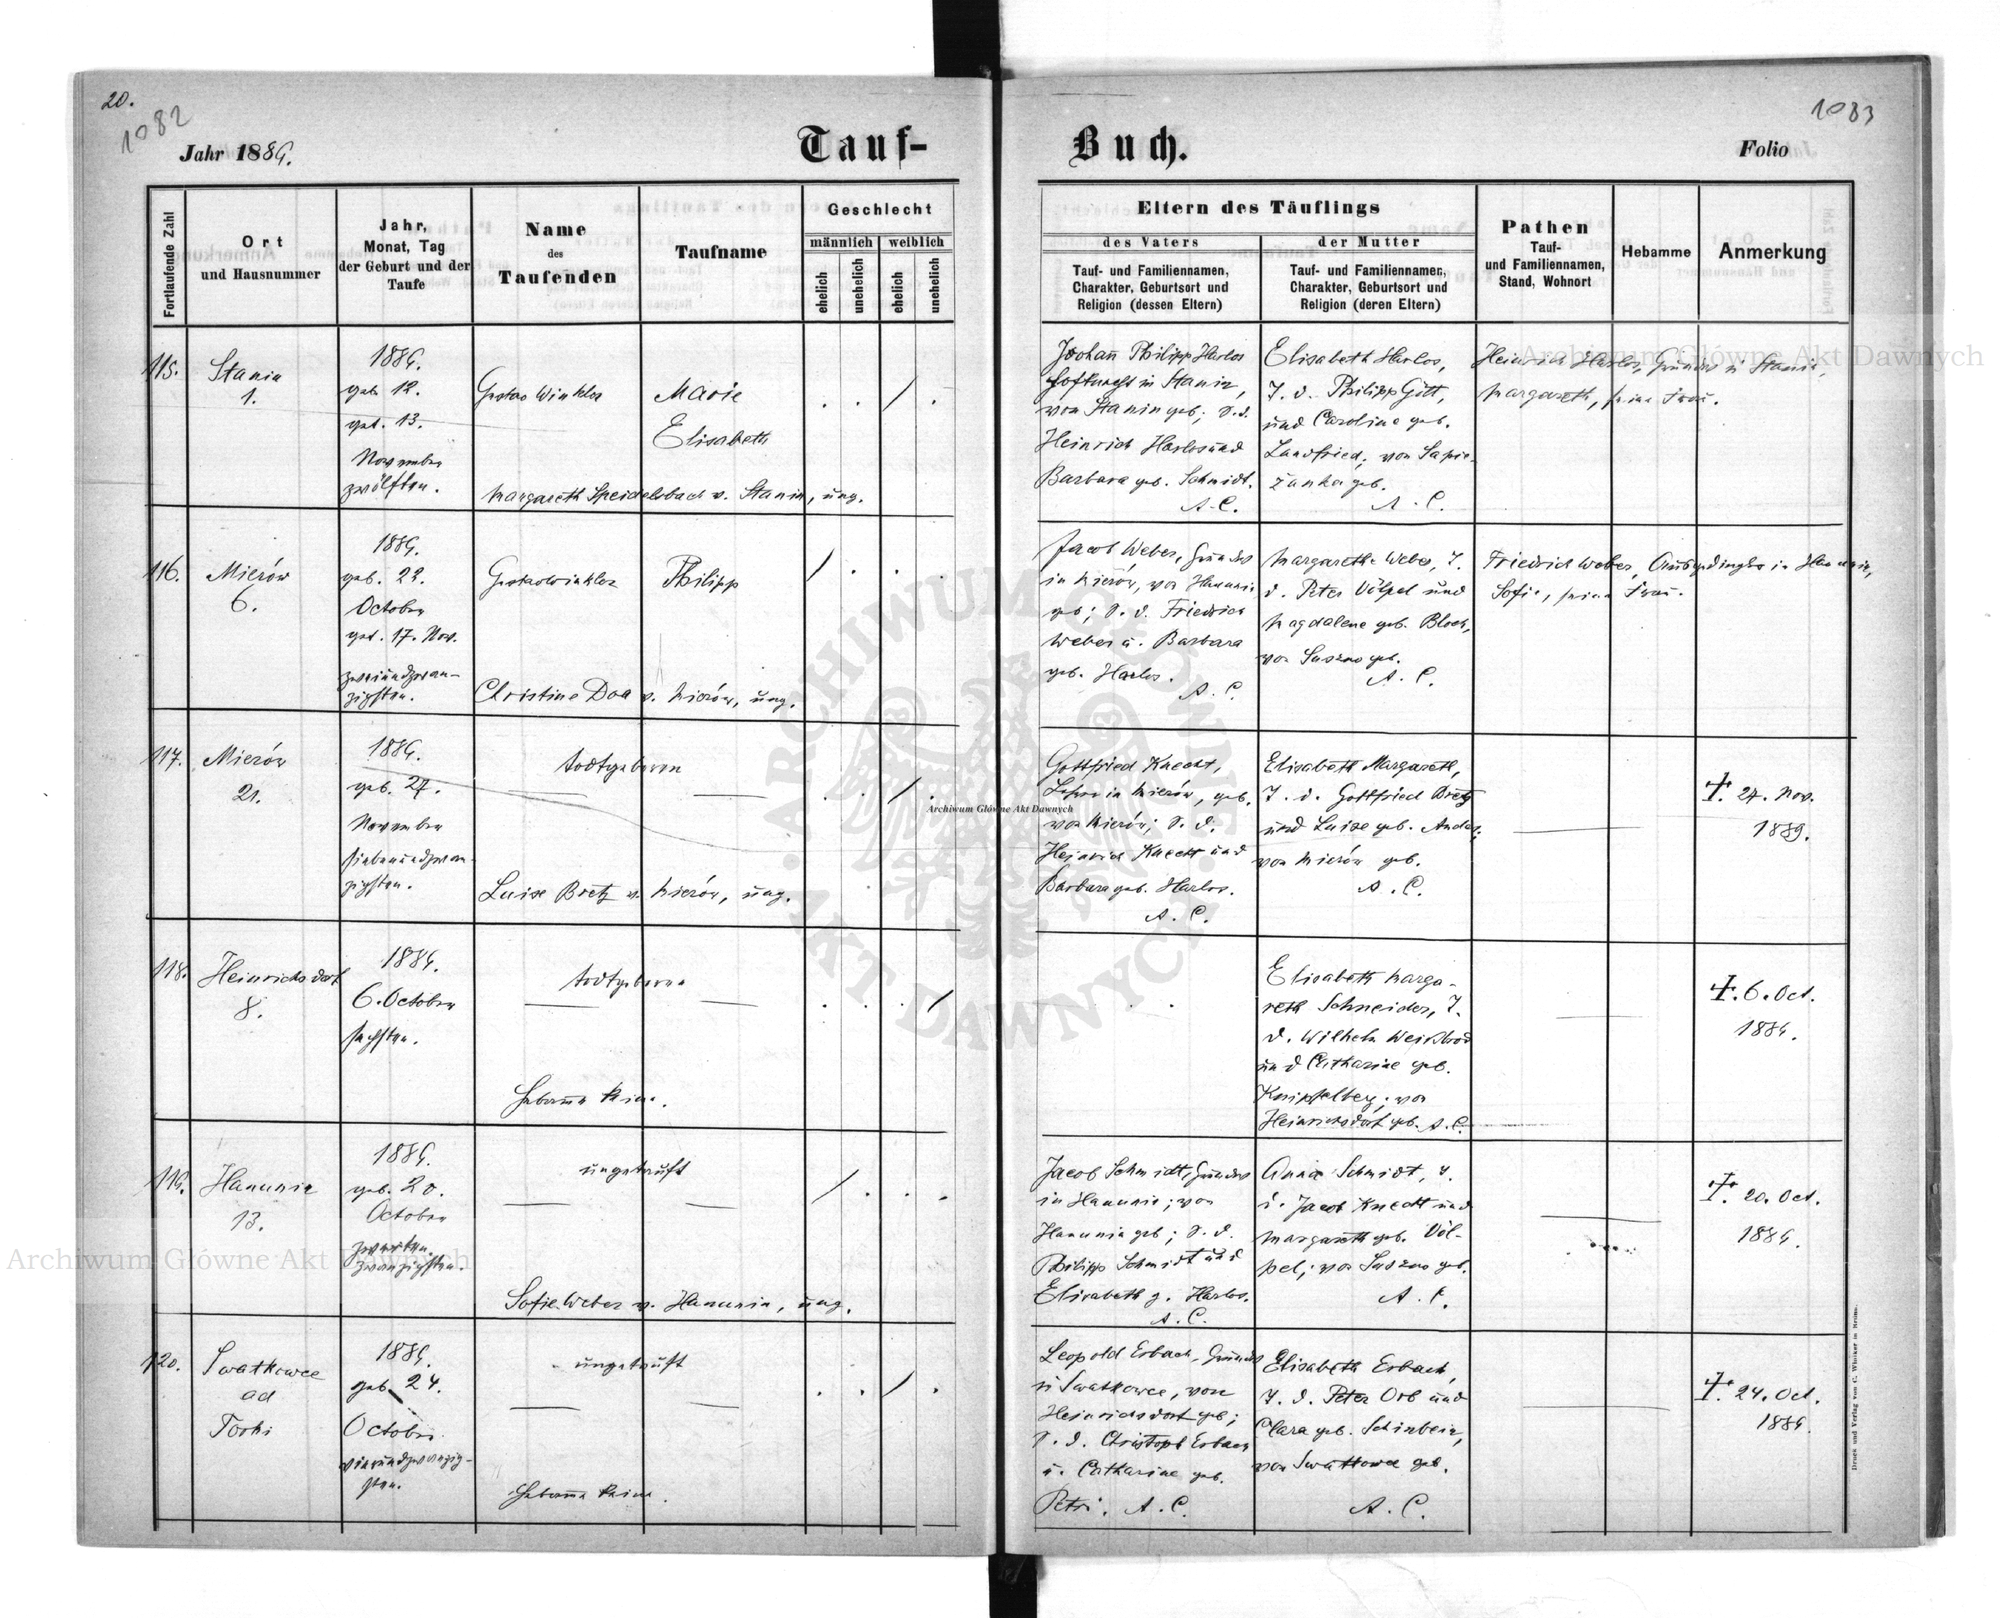 20.
1082
1083
Jahr 1889.
Tauf-
Buch.
Folio
Fortlaufende Zahl
Ort
und Hausnummer
Jahr,
Monat, Tag
der Geburt und der
Taufe
Name
des
Taufenden
Taufname
Geschlecht
männlich
weiblich
ehelich
unehelich
ehelich
unehelich
Eltern des Täuflings
des Vaters
Tauf- und Familiennamen,
Charakter, Geburtsort und
Religion (dessen Eltern)
der Mutter
Tauf- und Familiennamen,
Charakter, Geburtsort und
Religion (deren Eltern)
Pathen
Tauf-
und Familiennamen,
Stand, Wohnort
Hebamme
Anmerkung
115.
Stanin
1.
1889.
geb. 12.
get. 13.
November
zwölften.
Gustav Winkler
Marie
Elisabeth
Margareth Speidelsbach v. Stanin, ung.
Johann Philipp Harlos
in Stanin,
von Stanin geb; S. d.
Heinrich Harlos und
Barbara geb. Schmidt.
A. C.
Elisabeth Harlos,
T. d. Philipp Gött,
und Caroline geb.
Landfried; von Sapie-
zanka geb.
A. C.
Heinrich Harlos, Grundw in Stanin,
Margareth, seine Frau.
116.
Mierów
6.
1889.
geb. 22.
October
get. 17. Nov.
zweiundzwan-
zigsten.
Gustav Winkler
Philipp
Christine Doa v. Mierów, ung.
Jacob Weber, Grundw
in Mierów, von Hanunin
geb; S. d. Friedrich
Weber u. Barbara
geb. Harlos.
A. C.
Margarethe Weber, T.
d. Peter Völpel und
Magdalene geb. Bloch,
von Suszno geb.
A. C.
Friedrich Weber, Ausgedingler in Hanunin,
Sofie, seine Frau.
117.
Mierów
21.
1889.
geb. 27.
November
siebenundzwan-
zigsten.
todtgeboren
Luise Bretz v. Mierów, ung.
Gottfried Knecht,
in Mierów, geb.
von Mierów; S. d.
Heinrich Knecht und
Barbara geb. Harlos.
A. C.
Elisabeth Margareth,
T. d. Gottfried Bretz
und Luise geb.
von Mierów geb.
A. C.
†. 27. Nov.
1889.
118.
Heinrichsdorf
8.
1889.
6. October
sechsten.
todtgeboren
Hebamme keine.
Elisabeth Marga-
reth Schneider, T.
d. Wilhelm Weißbrod
und Catharine geb.
Knipfelberg; von
Heinrichsdorf geb. A. C.
†. 6. Oct.
1889.
119.
Hanunin
13.
1889.
geb. 20.
October
zwanzigsten.
ungetauft
Sofie Weber v. Hanunin, ung.
Jacob Schmidt, Grundw
in Hanunin; von
Hanunin geb; S. d.
Philipp Schmidt und
Elisabeth g. Harlos.
A. C.
Anna Schmidt, T.
d. Jacob Knecht und
Margareth geb. Völ-
pel; von Suszno geb.
A. C.
†. 20. Oct.
1889.
120.
Swatkowce
ad
Torki
1889.
geb. 24.
October
vierundzwanzig-
sten.
ungetauft
Hebamme keine.
Leopold Erbach, Grundw
in Swatkowce, von
Heinrichsdorf geb;
S. d. Christoph Erbach
u. Catharine geb.
Petri. A. C.
Elisabeth Erbach,
T. d. Peter Orb und
Clara geb. Schinbein,
von Swatkowce geb.
A. C.
†. 24. Oct.
1889.
Druck und Verlag von C. Winiker in Brünn.
Archiwum Główne Akt Dawnych
Archiwum Główne Akt Dawnych
Archiwum Główne Akt Dawnych
ARCHIWUM GŁÓWNE AKT DAWNYCH